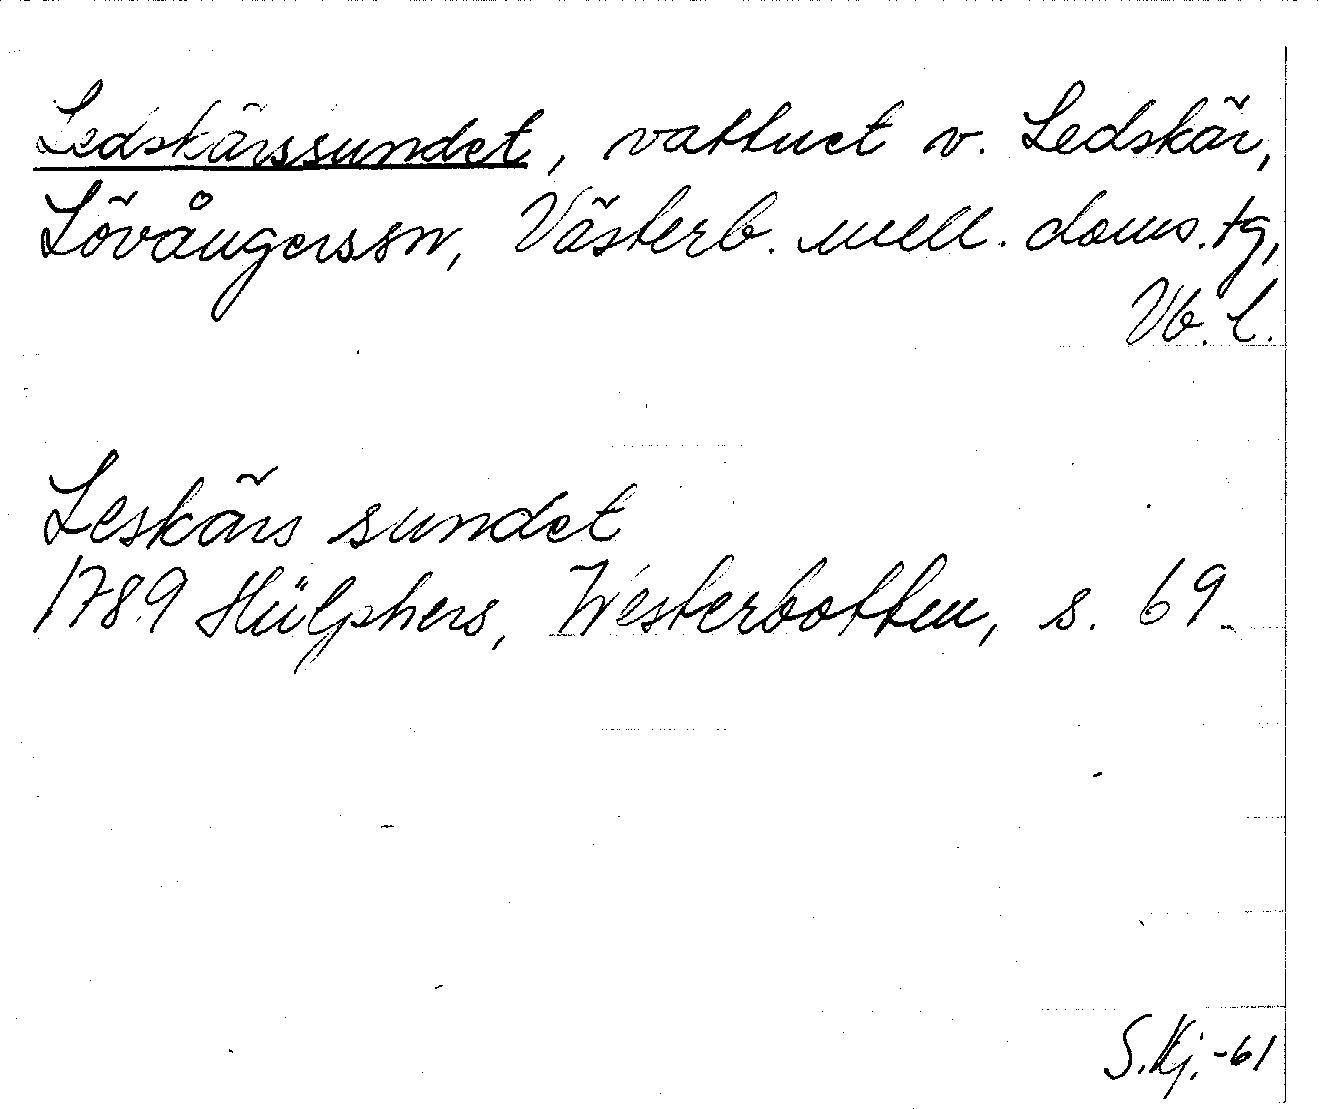 Ledskärssundet, vattnet v. Ledskär,
Lövångerssn, Västerb. mell. doms. tg,
Vb. l.
Leskärs sundet
1789 Hülphers, Westerbotten, s. 69.
S.Kj.-61